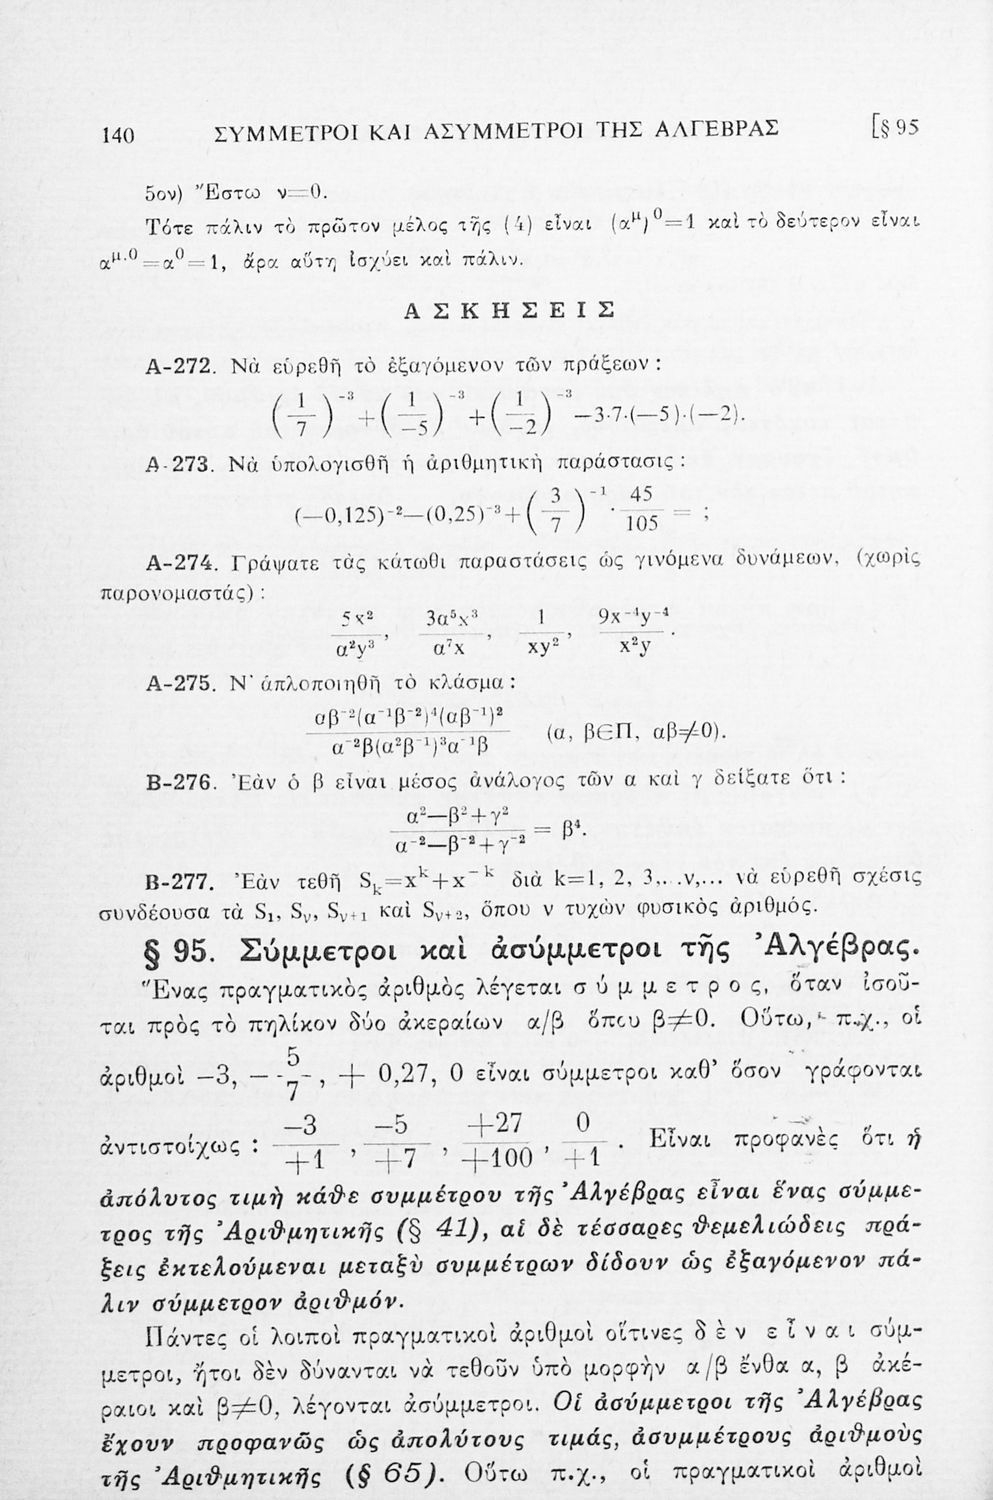 140 ΣΥΜΜΕΤΡΟΙ ΚΑΙ ΑΣΥΜΜΕΤΡΟΙ ΤΗΣ ΑΛΓΕΒΡΑΣ [§ 95
5ον) Ἔστω ν=0.
Τότε πάλιν τὸ πρῶτον μέλος τῆς (4) εἶναι (α^μ)^0=1 καὶ τὸ δεύτερον εἶναι
α^μ·0=α^0=1, ἄρα αὕτη ἰσχύει καὶ πάλιν.
ΑΣΚΗΣΕΙΣ
Α-272. Νὰ εὑρεθῆ τὸ ἐξαγόμενον τῶν πράξεων :
(1/7)^-3 + (1/-5)^-3 + (1/-2)^-3 −3·7·(−5)·(−2).
Α-273. Νὰ ὑπολογισθῆ ἡ ἀριθμητικὴ παράστασις :
(−0,125)^-2−(0,25)^-3 + (3/7)^-1 · 45/105 = ;
Α-274. Γράψατε τὰς κάτωθι παραστάσεις ὡς γινόμενα δυνάμεων, (χωρὶς
παρονομαστάς) :
5x²/α²y³ , 3α⁵x³/α⁷x , 1/xy² , 9x⁻⁴y⁻⁴/x²y .
Α-275. Ν' ἁπλοποιηθῆ τὸ κλάσμα :
αβ⁻²(α⁻¹β⁻²)⁴(αβ⁻¹)² / α⁻²β(α²β⁻¹)³α⁻¹β (α, β∈Π, αβ≠0).
Β-276. Ἐὰν ὁ β εἶναι μέσος ἀνάλογος τῶν α καὶ γ δείξατε ὅτι :
α²−β²+γ² / α⁻²−β⁻²+γ⁻² = β⁴.
Β-277. Ἐὰν τεθῆ S_k=x^k+x^-k διὰ k=1, 2, 3,...ν,... νὰ εὑρεθῆ σχέσις
συνδέουσα τὰ S₁, S_ν, S_ν+1 καὶ S_ν+2, ὅπου ν τυχὼν φυσικὸς ἀριθμός.
§ 95. Σύμμετροι καὶ ἀσύμμετροι τῆς Ἀλγέβρας.
Ἕνας πραγματικὸς ἀριθμὸς λέγεται σύμμετρος, ὅταν ἰσοῦ-
ται πρὸς τὸ πηλίκον δύο ἀκεραίων α/β ὅπου β≠0. Οὕτω, π.χ., οἱ
ἀριθμοὶ −3, −5/7, + 0,27, 0 εἶναι σύμμετροι καθ' ὅσον γράφονται
ἀντιστοίχως : −3/+1 , −5/+7 , +27/+100 , 0/+1 . Εἶναι προφανὲς ὅτι ἡ
ἀπόλυτος τιμὴ κάθε συμμέτρου τῆς Ἀλγέβρας εἶναι ἕνας σύμμε-
τρος τῆς Ἀριθμητικῆς (§ 41), αἱ δὲ τέσσαρες θεμελιώδεις πρά-
ξεις ἐκτελούμεναι μεταξὺ συμμέτρων δίδουν ὡς ἐξαγόμενον πά-
λιν σύμμετρον ἀριθμόν.
Πάντες οἱ λοιποὶ πραγματικοὶ ἀριθμοὶ οἵτινες δὲν εἶναι σύμ-
μετροι, ἤτοι δὲν δύνανται νὰ τεθοῦν ὑπὸ μορφὴν α/β ἔνθα α, β ἀκέ-
ραιοι καὶ β≠0, λέγονται ἀσύμμετροι. Οἱ ἀσύμμετροι τῆς Ἀλγέβρας
ἔχουν προφανῶς ὡς ἀπολύτους τιμάς, ἀσυμμέτρους ἀριθμοὺς
τῆς Ἀριθμητικῆς (§ 65). Οὕτω π.χ., οἱ πραγματικοὶ ἀριθμοὶ